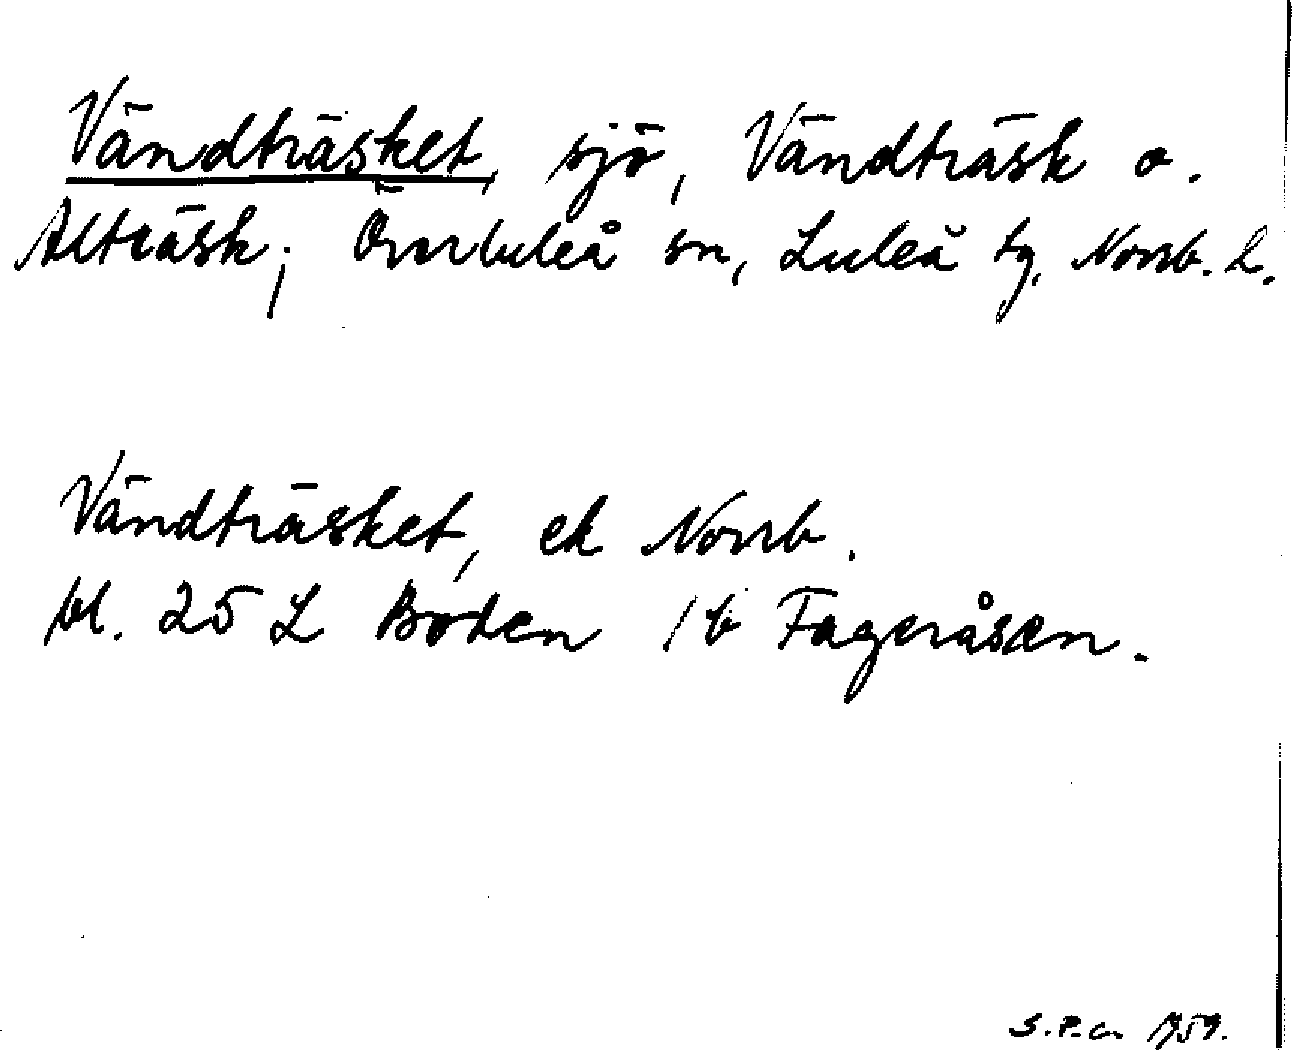 Vändträsket, sjö, Vändträsk o.
Alträsk; Överluleå sn, Luleå tg, Norrb. L.
Vändträsket, ek Norrb.
bl. 25 L Boden 1 b Fageråsen.
S.P.G. 1959.